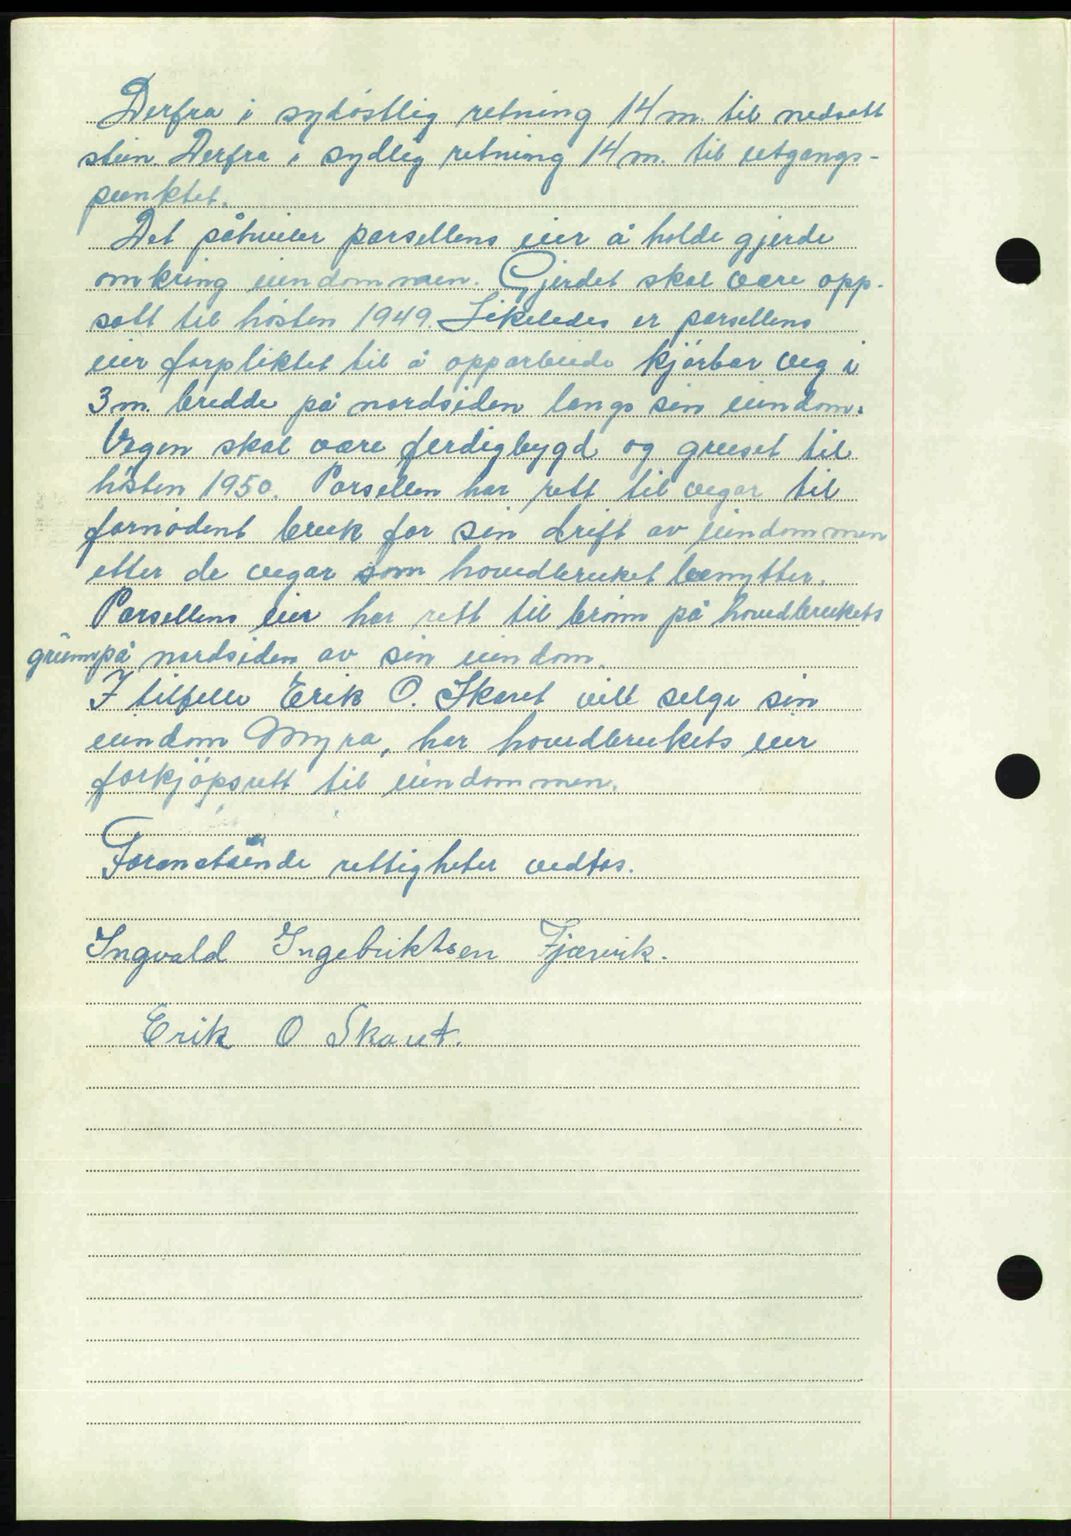 Derfra i sydöstlig retning 14 m. til nedsatt
stein. Derfra i sydlig retning 14 m. til utgangs-
punktet.
Det påhviler parsellens eier å holde gjerde
omkring eiendommen. Gjerdet skal være opp-
satt til hösten 1949. Likeledes er parsellens
eier forpliktet til å opparbeide kjörbar veg i
3 m. bredde på nordsiden langs sin eiendom.
Vegen skal være ferdigbygd og gruset til
hösten 1950. Parsellen har rett til vegar til
fornödent bruk for sin drift av eiendommen
etter de vegar som hovedbruket benytter.
Parsellens eier har rett til brönn på hovedbrukets
grunn på nordsiden av sin eiendom.
I tilfelle Erik O. Skaret vill selge sin
eiendom Myra, har hovedbrukets eier
forkjöpsrett til eiendommen.
Foranstående rettigheter vedtas.
Ingvald Ingebriktsen Fjærvik.
Erik O Skaret.